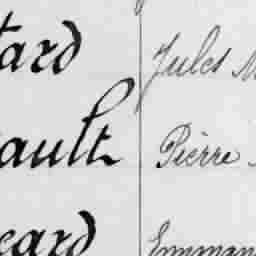 tard Jules M
ault Pierre
card Emman